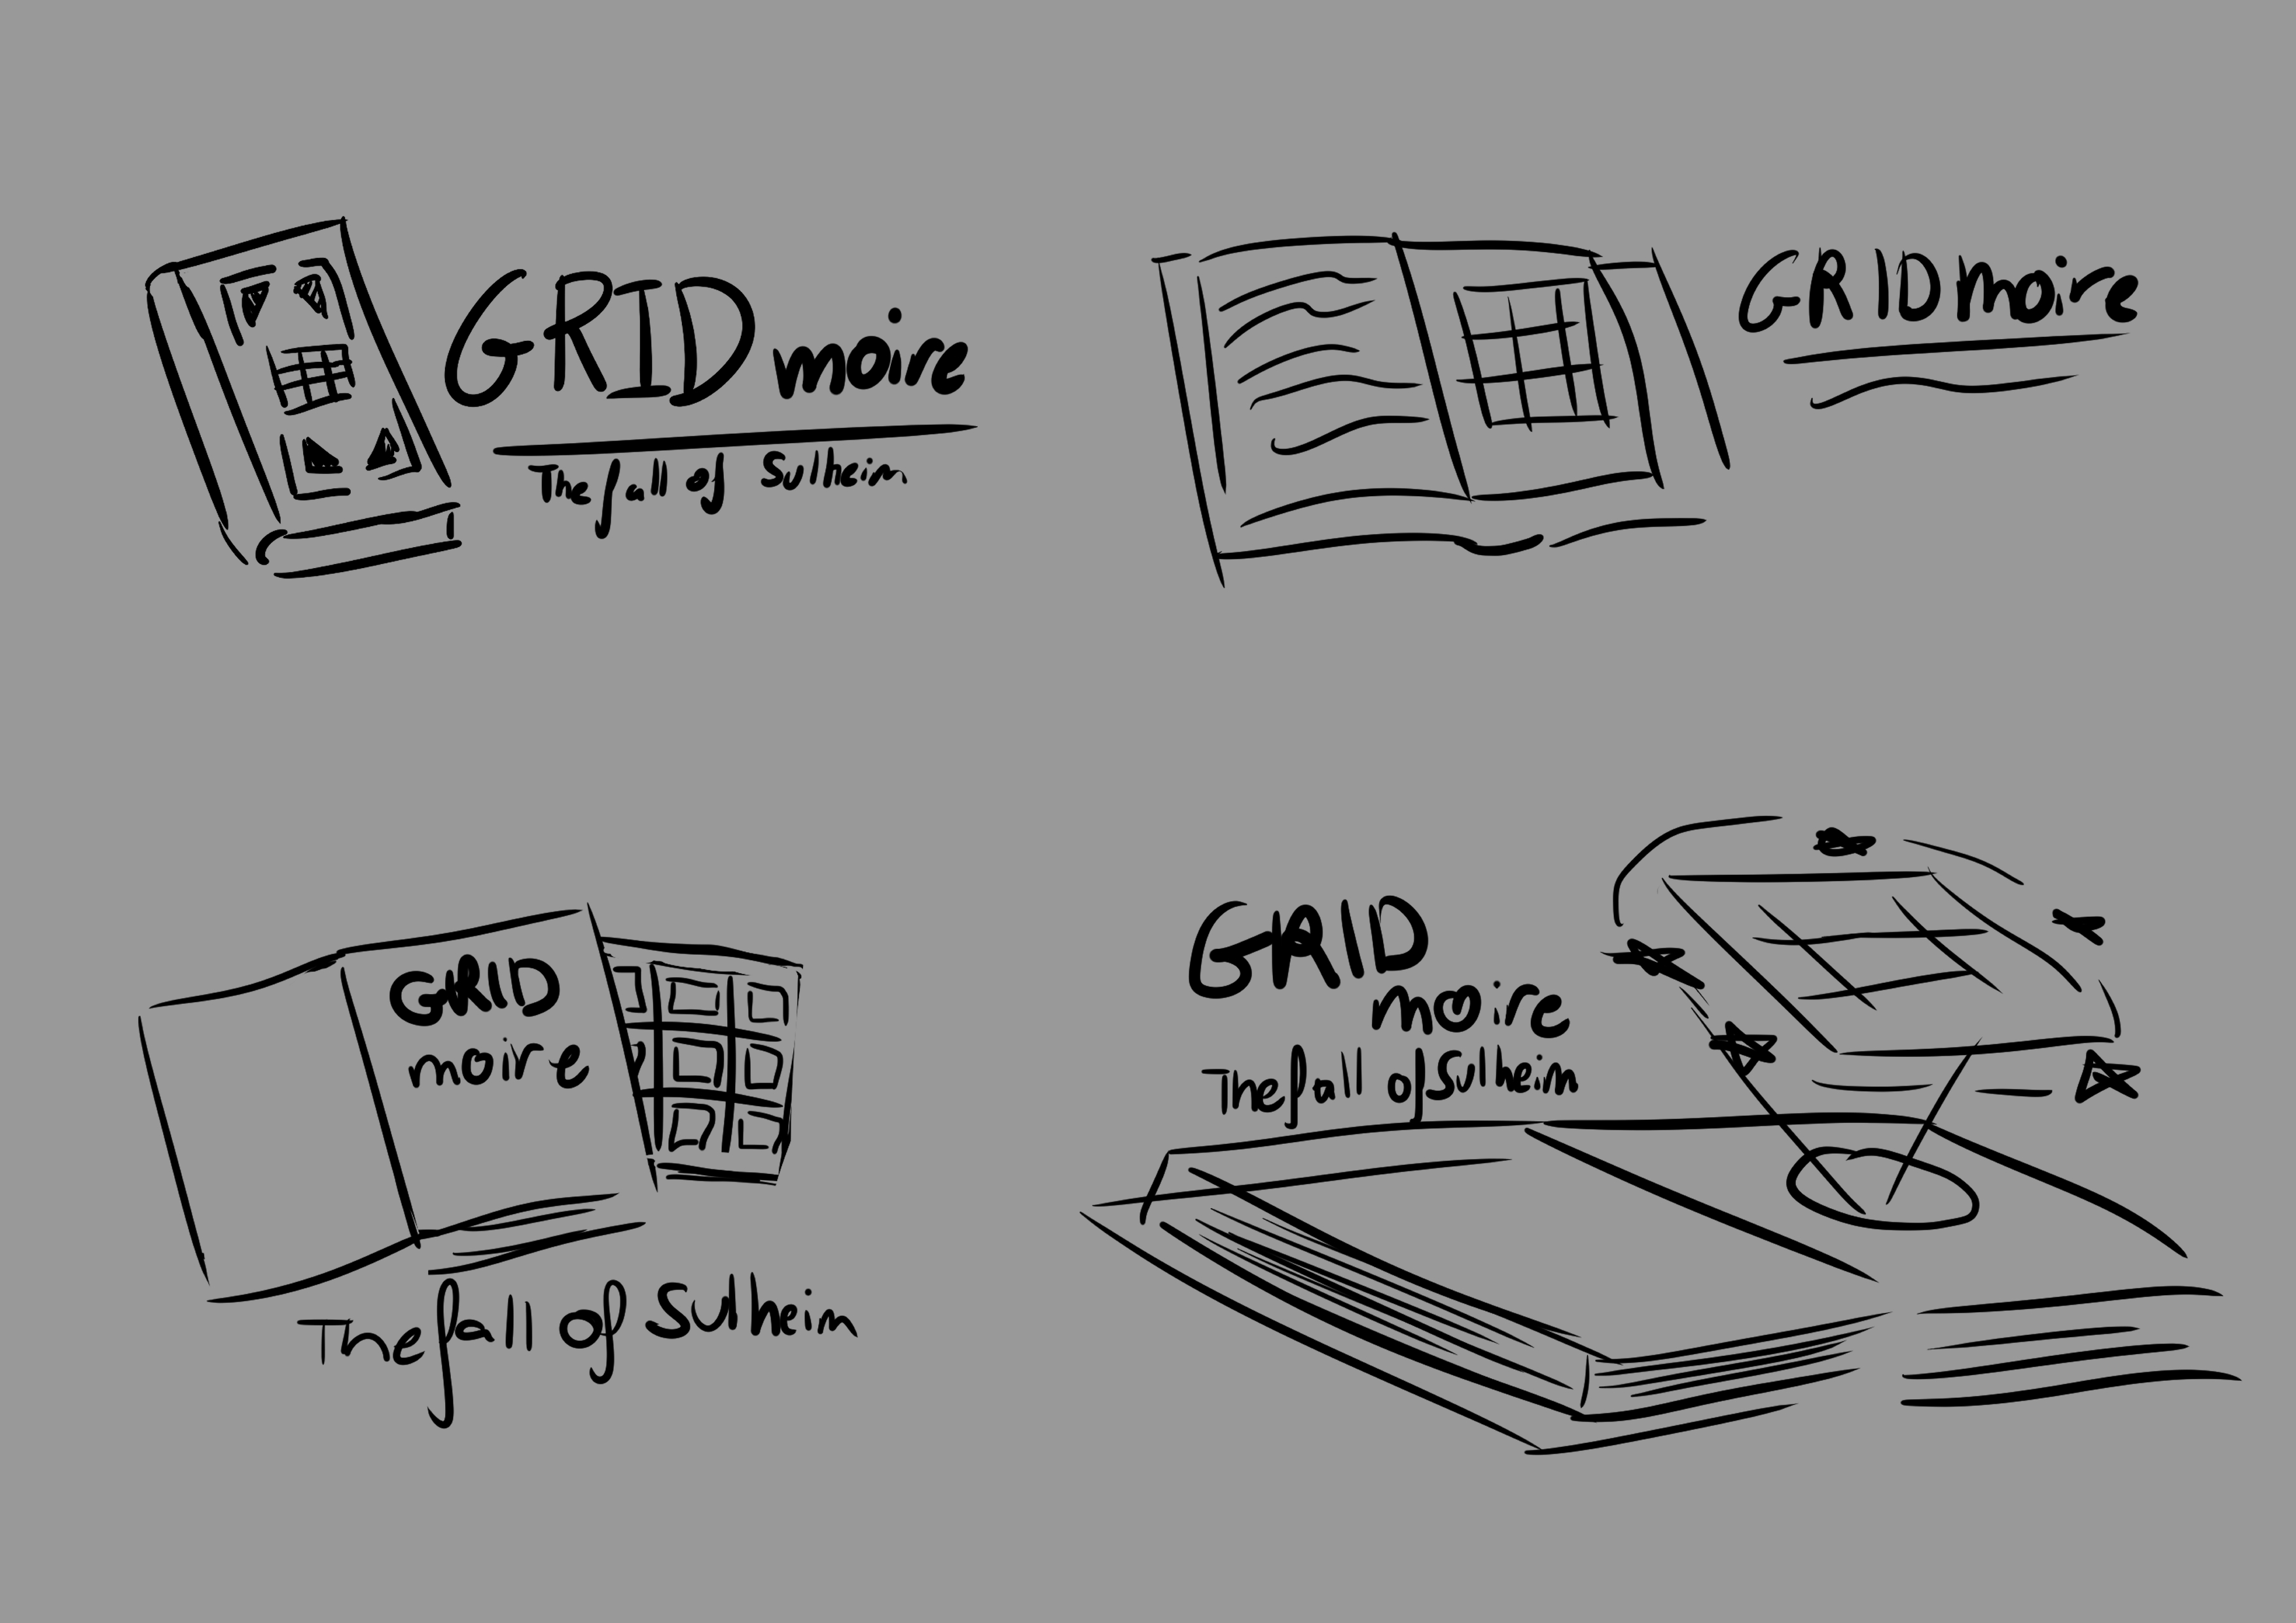 GRID moire
The fall of Sulheim
GRID moire
GRID
moire
The fall of Sulheim
GRID
moire
The fall of Sulheim